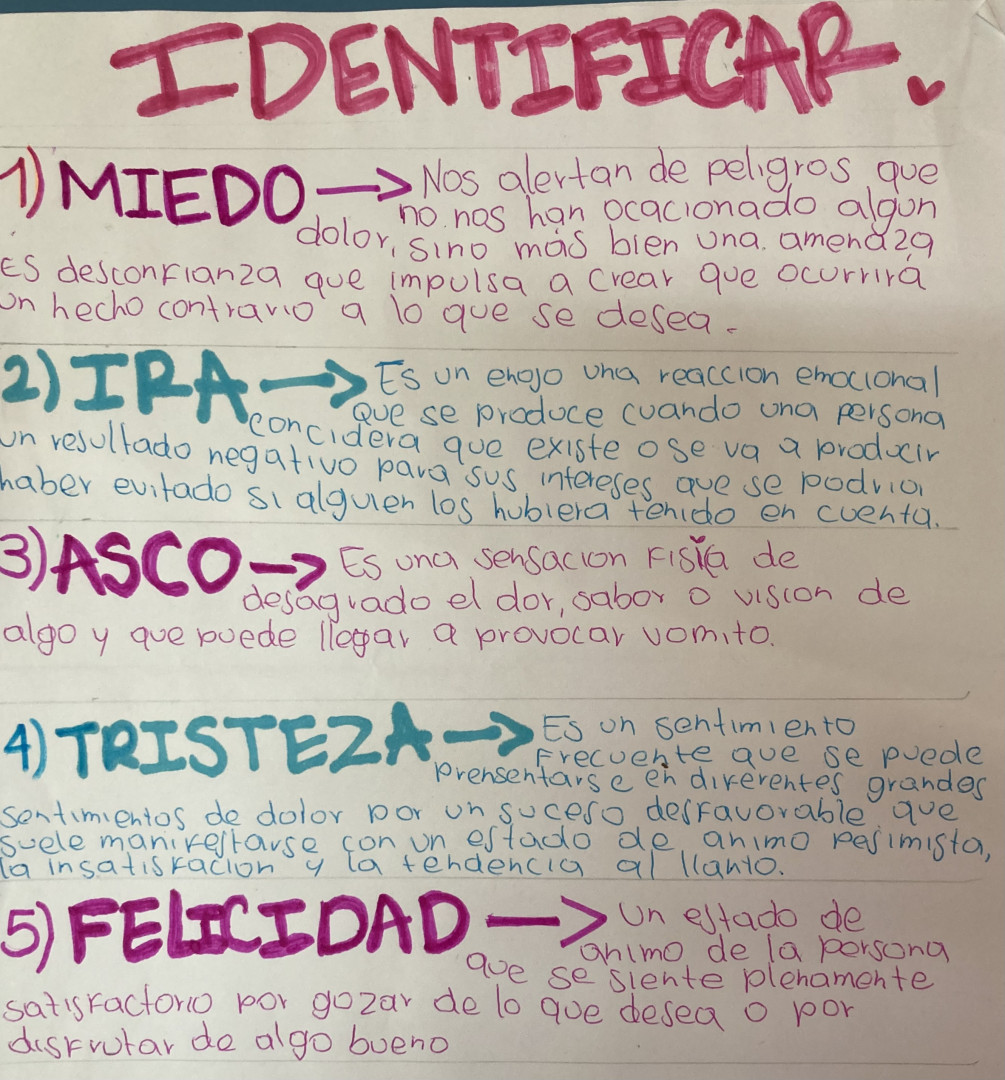 IDENTIFICAR.
1) MIEDO → Nos alertan de peligros que
no nos han ocacionado algun
dolor, sino más bien una. amenaza
ES desconfianza que impulsa a crear que ocurrirá
un hecho contrario a lo que se desea.
2) IRA → Es un enojo una reaccion emocional
que se produce cuando una persona
concidera que existe o se va a producir
un resultado negativo para sus intereses que se podria
haber evitado si alguien los hubiera tenido en cuenta.
3) ASCO → Es una sensacion fisica de
desagrado el olor, sabor o vision de
algo y que puede llegar a provocar vomito.
4) TRISTEZA → Es un sentimiento
frecuente que se puede
prensentarse en diferentes grandes
sentimientos de dolor por un suceso desfavorable que
suele manifestarse con un estado de animo pesimista,
la insatisfacion y la tendencia al llanto.
5) FELICIDAD → un estado de
animo de la persona
que se siente plenamente
satisfactorio por gozar de lo que desea o por
disfrutar de algo bueno